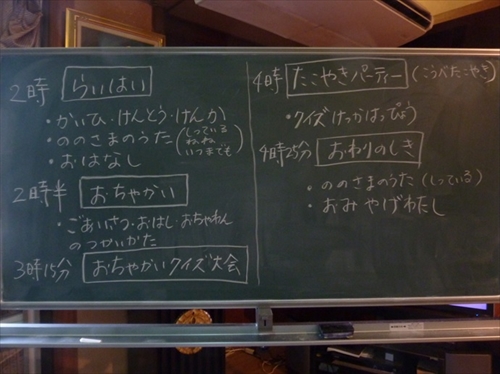 2時 らいはい
・かいひ・けんとう・けんか
・ののさまのうた(しっている ねぇねぇ いつまでも)
・おはなし
2時半 おちゃかい
・ごあいさつ・おはし・おちゃわん
のつかいかた
3時15分 おちゃかいクイズ大会
4時 たこやきパーティー (こうべたこやき)
・クイズけっかはっぴょう
4時25分 おわりのしき
・ののさまのうた(しっている)
・おみやげわたし